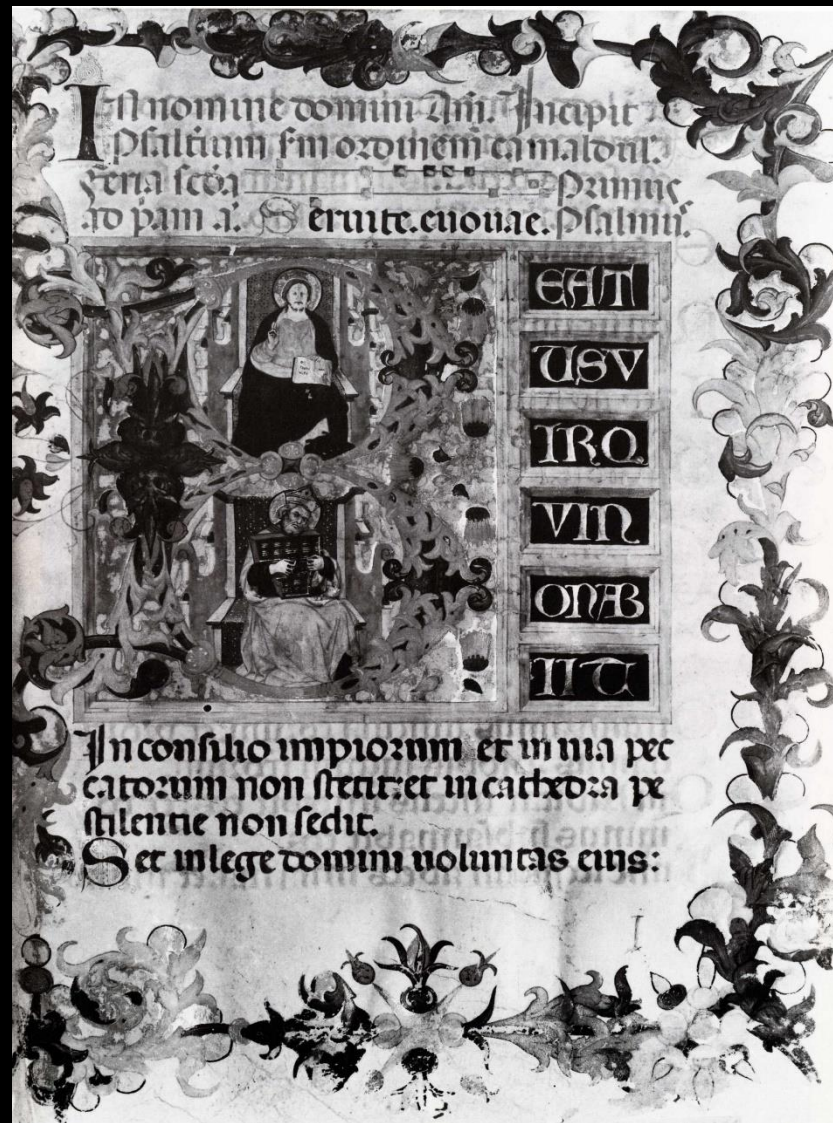 In nomine domini Am̄. Incipit
Psalteriũ fm ordinem camaldul.
Feria scđa Primus
ad p̄am a. Seruite. euouae. Psalmus.
B
EAT
USV
IRQ
VIN
ONAB
IIT
In consilio impiorum et in uia pec
catorum non stetit: et in cathedra pe
stilentie non sedit.
Set in lege domini uoluntas eius:
I